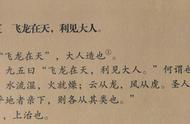 飞龙在天，利见大人。
“飞龙在天”，大人造也①。
九五曰“飞龙在天，利见大人。”何谓也
水流湿，火就燥；云从龙，风从虎。圣人
地者亲下，则各从其类也。”
上治也。